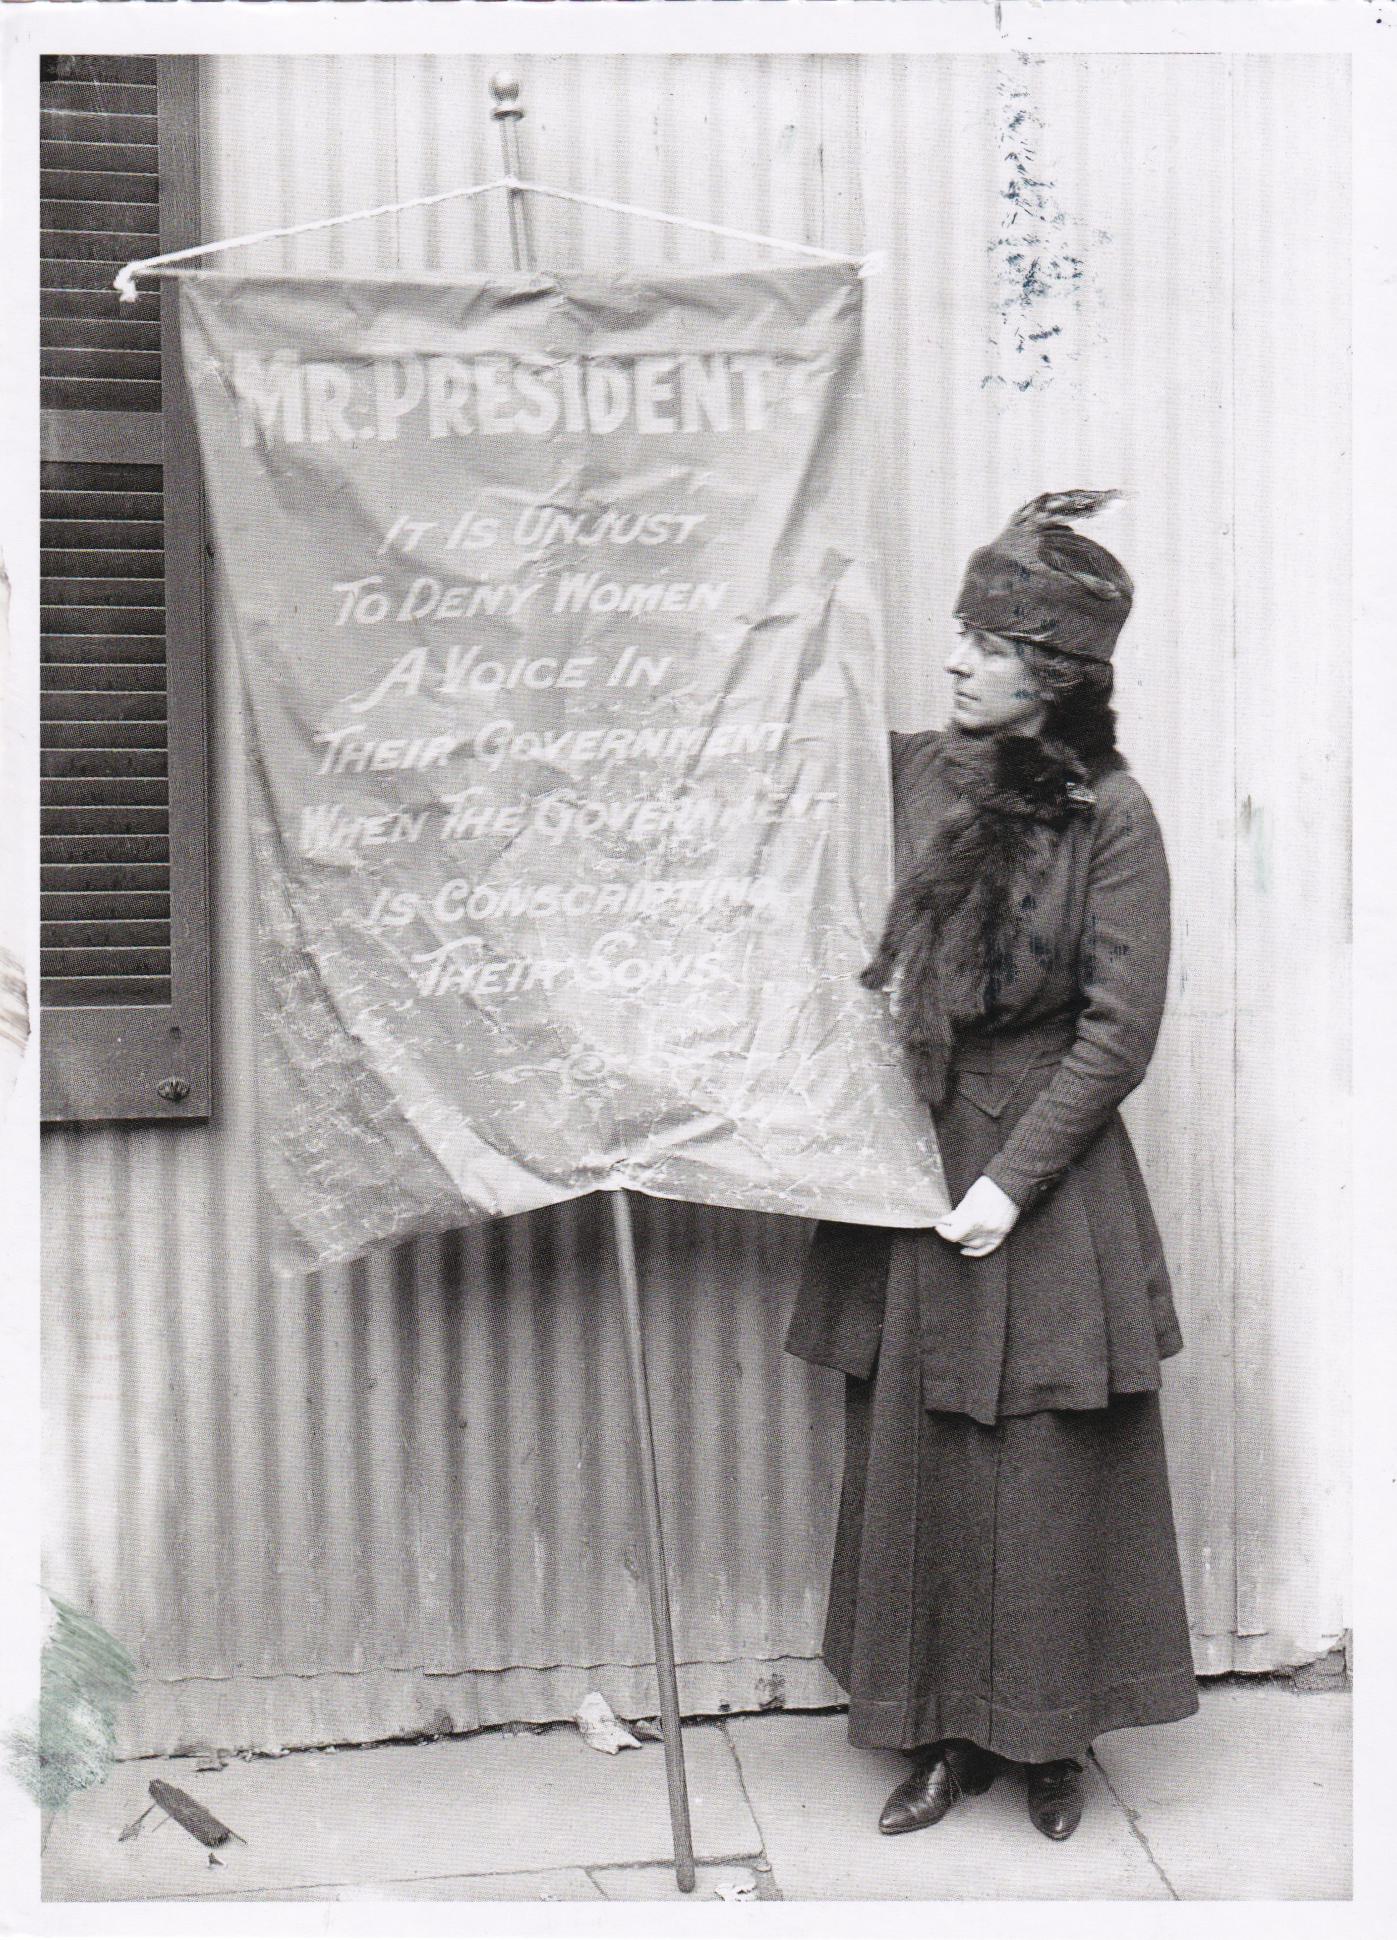 MR. PRESIDENT:
IT IS UNJUST
TO DENY WOMEN
A VOICE IN
THEIR GOVERNMENT
WHEN THE GOVERNMENT
IS CONSCRIPTING
THEIR SONS